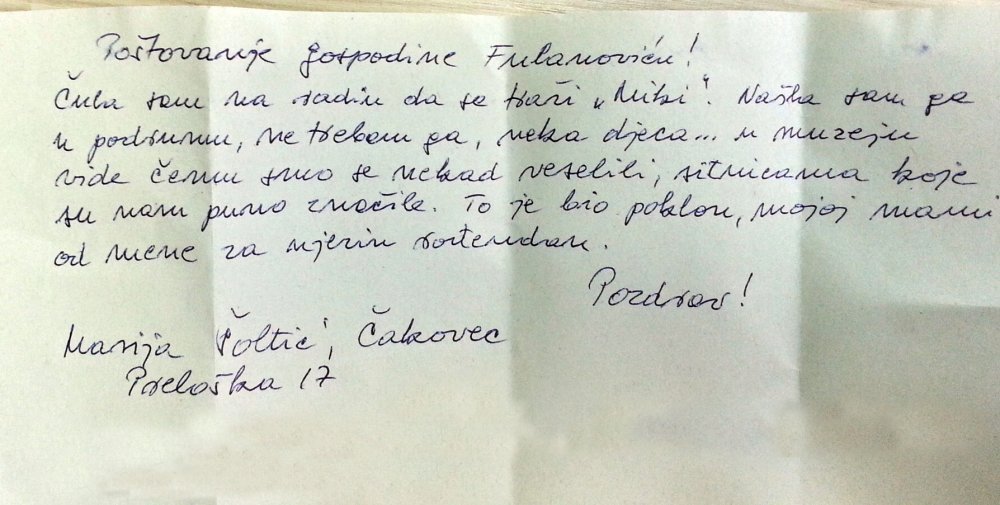 Poštovanije gospodine Fulanoviću!
Čula sam na radiu da se traži „Miki“. Našla sam ga
u podrumu, ne trebam ga, neka djeca... u muzeju
vide čemu smo se nekad veselili, sitnicama koje
su nam puno značile. To je bio poklon, mojoj mami
od mene za njezin rođendan.
Pozdrav!
Marija Šoltić, Čakovec
Preloška 17